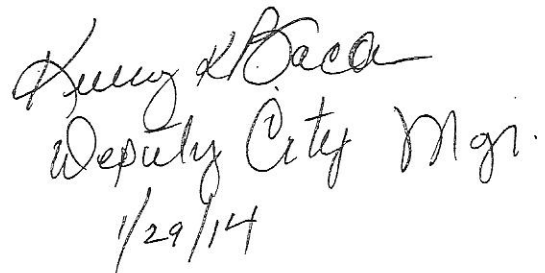 K Baca
Deputy City Mgr.
1/29/14